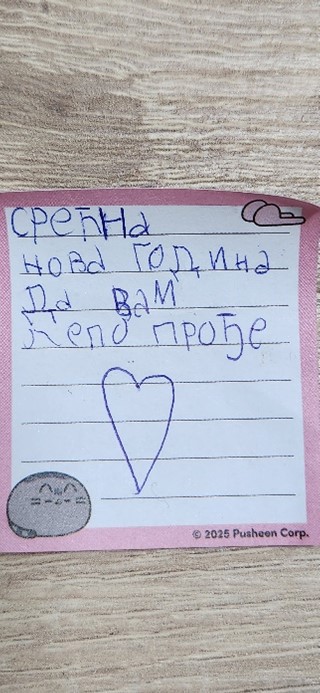 СРЕЋНа
НОВа ГОДИНа
Да ВаМ
лепо прође
© 2025 Pusheen Corp.